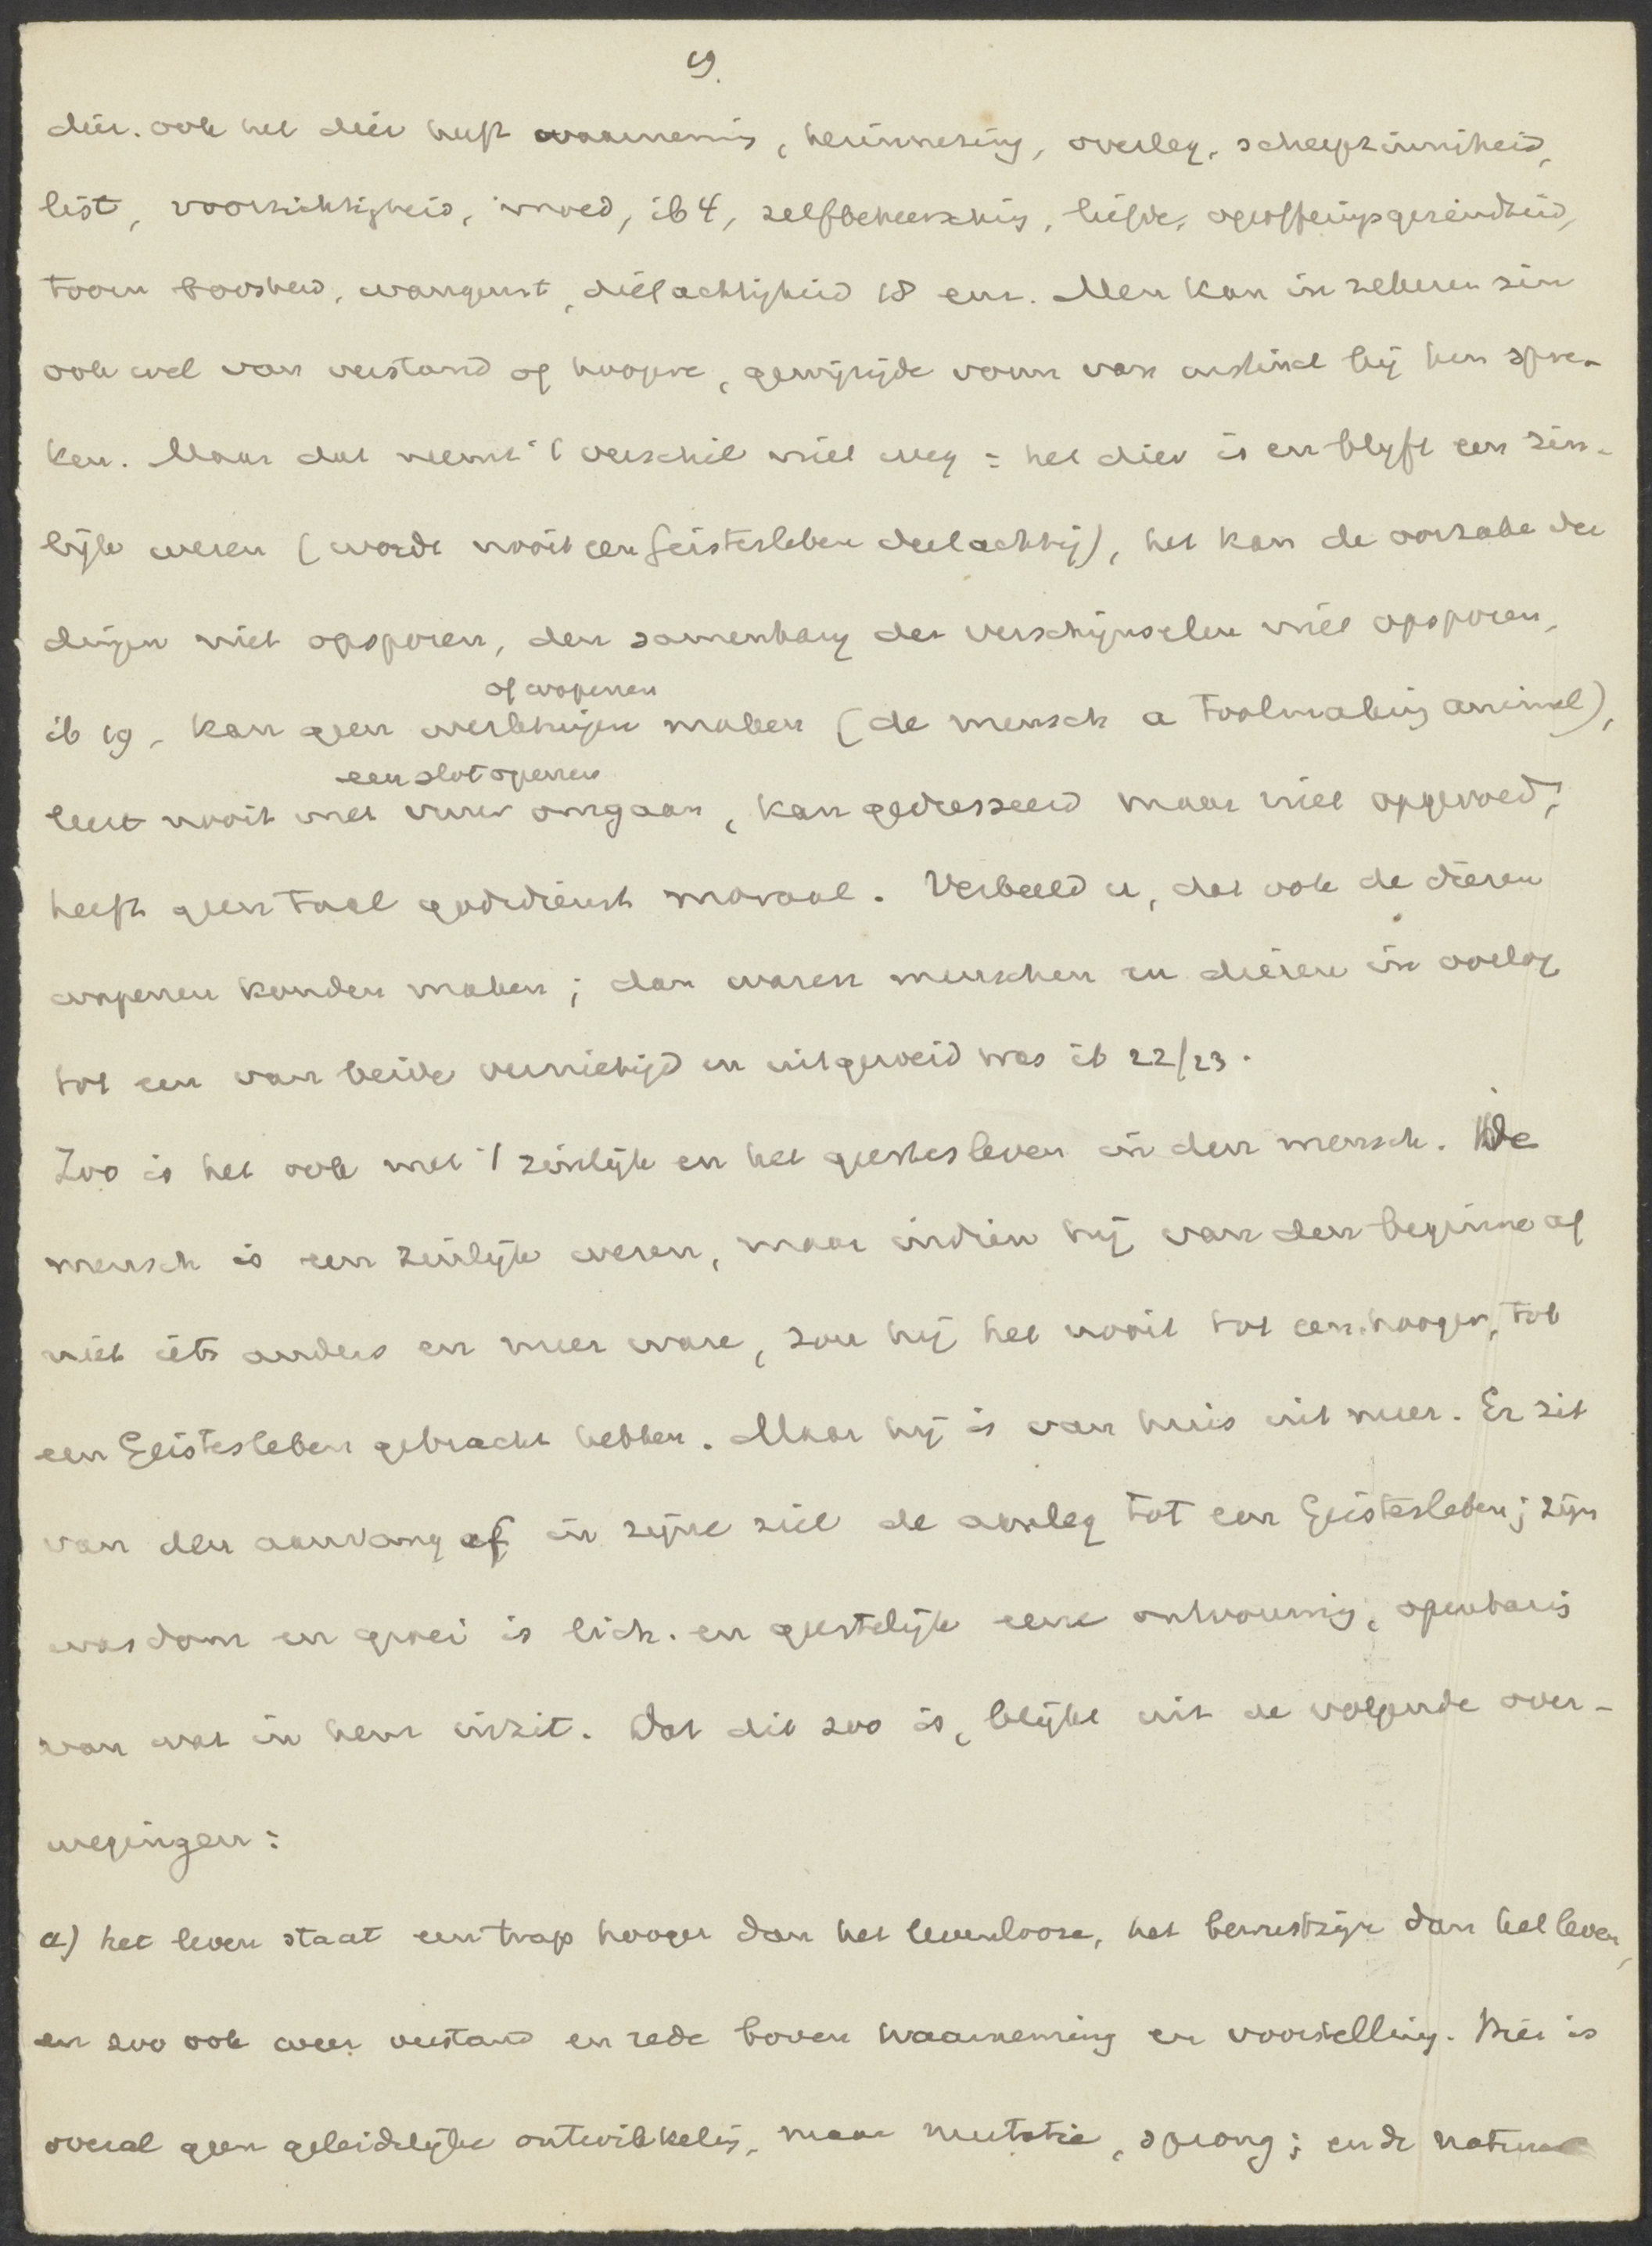 9.
dier. ook het dier heeft waarneming, herinnering, overleg, scherpzinnigheid,
list, voorzichtigheid, moed, ib 4, zelfbeheersching, liefde, opofferingsgezindheid,
toorn boosheid, wangunst, dielachtigheid 18 enz. Men kan in zekeren zin
ook wel van verstand of hoogere, gewijzigde vorm van instinct bij hen spre-
ken. Maar dat neemt 't verschil niet weg: het dier is en blijft een zin-
lijk wezen (wordt nooit een Geistesleben deelachtig), het kan de oorzake der
dingen niet opsporen, den samenhang der verschijnselen niet opsporen,
of wapenen
ib 19, kan geen werktuigen maken (de mensch a toolmaking animal),
een slot openen
leert nooit met vuur omgaan, kan gedresseerd maar niet opgevoed,
heeft geen taal godsdienst moraal. Verbeeld u, dat ook de dieren
wapenen konden maken; dan waren menschen en dieren in oorlog
tot een van beide vernietigd en uitgeroeid was ib 22/23.
Zoo is het ook met 't zinlijk en het geestesleven in den mensch. De
mensch is een zinlijk wezen, maar indien hij van den beginne af
niet iets anders en meer ware, zou hij het nooit tot een hooger, tot
een Geistesleben gebracht hebben. Maar hij is van huis uit meer. Er zit
van den aanvang af in zijne ziel de aanleg tot een Geistesleben; zijn
wasdom en groei is lich. en geestelijk eene ontvouwing, openbaring
van wat in hem inzit. Dat dit zoo is, blijkt uit de volgende over-
wegingen:
a) het leven staat een trap hooger dan het levenlooze, het bewustzijn dan het leven,
en zoo ook weer verstand en rede boven waarneming en voorstelling. Hier is
overal geen geleidelijke ontwikkeling, maar mutatie, sprong; en de natuur